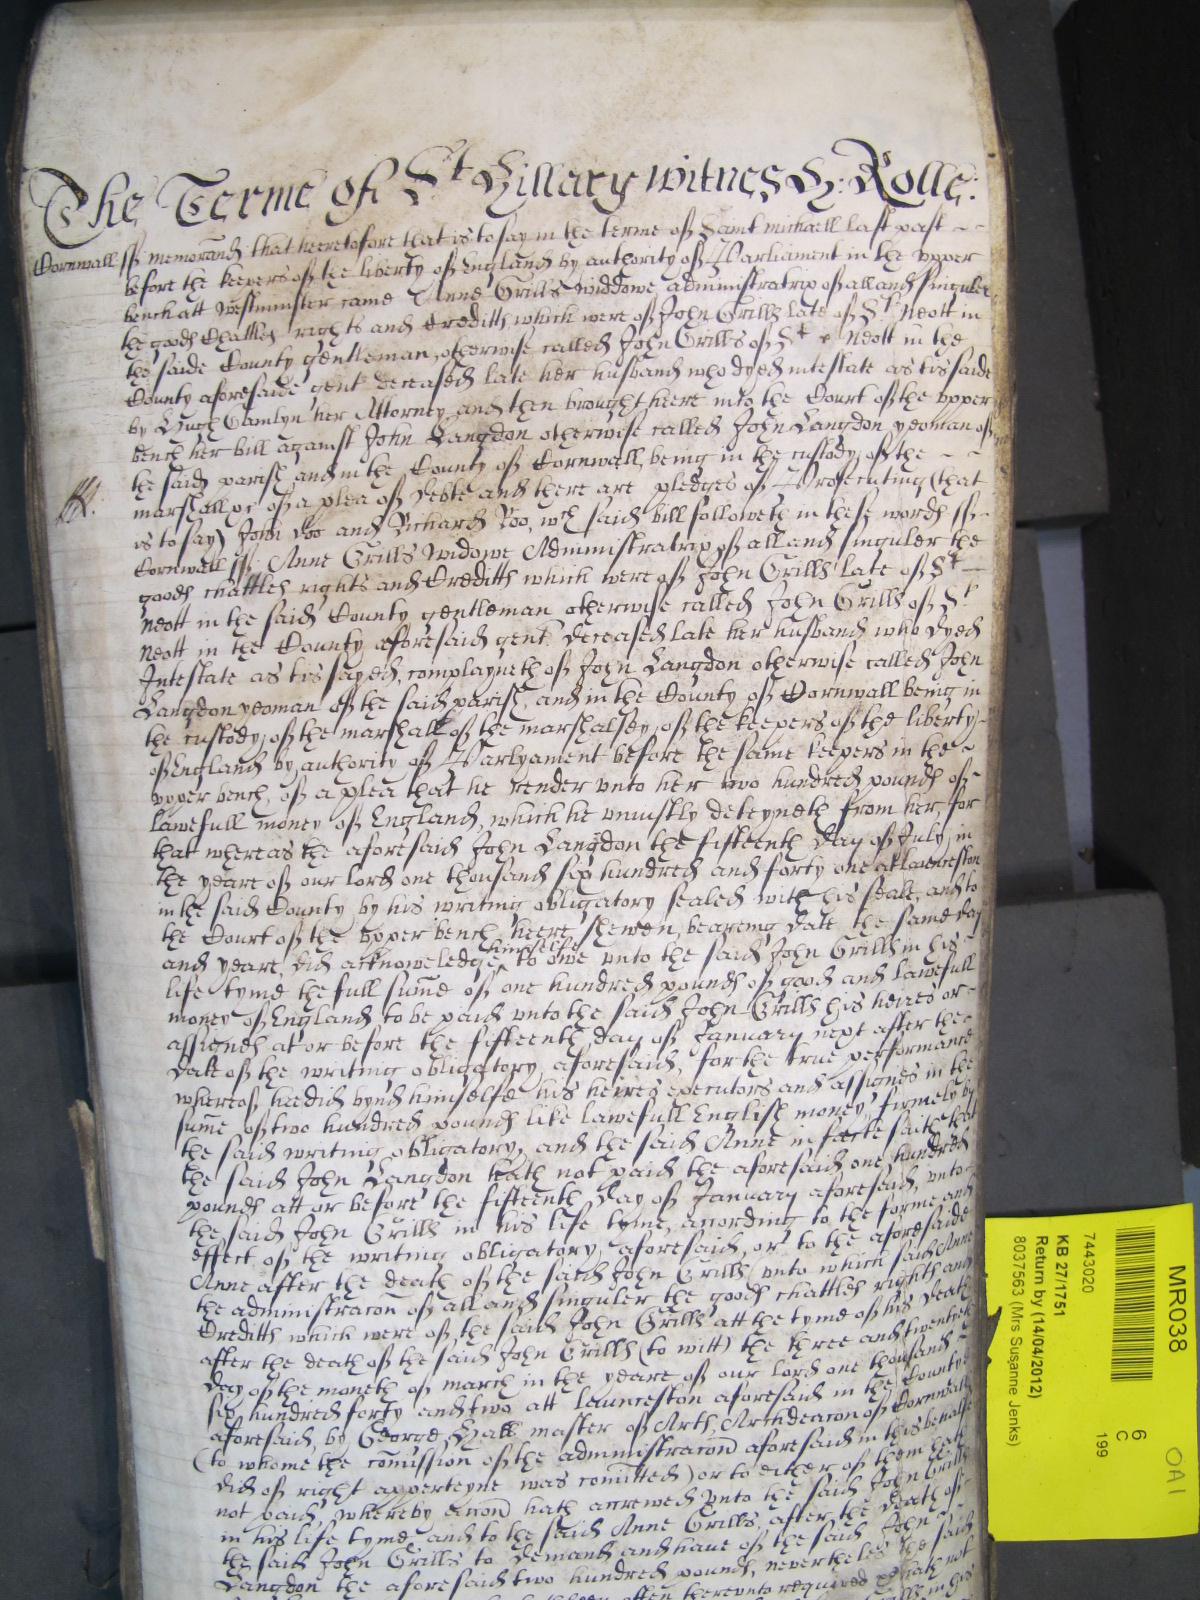 The Terme of St Hillary witnes H: Rolle:
Cornwall ss memorand that heeretofore that is to say in the terme of Saint michaell last past
before the keepers of the liberty of England by authority of Parliament in the upper
bench att Westminster came Anne Grills widdowe administratrix of all and singuler
the goods Chattles rights and Creditts which were of John Grills late of St Neott in
the saide County gentleman, otherwise called John Grills of St Neott in the
County aforesaide gent deceased late her husband who dyed intestate as tis saide
by Hugh Gamlyn her Attorney, and then brought heere into the Court of the upper
bench her bill against John Langdon otherwise called John Langdon yeoman of
the said parish, and in the County of Cornwall, being in the custody of the
marshall &c of a plea of debte and there are pledges of Prosecuting (that
is to say) John Doo and Richard Roo, wch said bill followeth in these words ss
Cornwall ss: Anne Grills widowe Administratrix of all and singuler the
goods chattles rights and Creditts which were of John Grills late of St
Neott in the said County gentleman otherwise called John Grills of St
Neott in the County aforesaid gent deceased late her husband who dyed
Intestate as tis sayed, complayneth of John Langdon otherwise called John
Langdon yeoman of the said parish, and in the County of Cornwall being in
the custody of the marshall of the marshalsey of the keepers of the liberty
of England by authority of Parlyament before the same keepers in the
upper bench, of a plea that he render unto her two hundred pounds of
lawefull money of England, which he uniustly deteyneth from her, for
that whereas the aforesaid John Langdon the fifteenth day of July, in
the yeare of our lord one thousand six hundred and forty one at launceston
in the said County by his writing obligatory sealed with his seale, and to
the Court of the upper bench heere shewen, beareing date the same day
and yeare, did acknowledge himselfe to owe unto the said John Grills in his
life tyme the full sume of one hundred pounds of good and lawefull
money of England to be paid unto the said John Grills his heires or
assignes at or before the fifteenth day of January next after the
date of the writing obligatory aforesaid, for the true performance
whereof hee did bynd himselfe his heires executors and assignes in the
sume of two hundred pounds like lawefull English money, firmely by
the said writing obligatory, and the said Anne in facte saith that
the said John Langdon hath not paid the aforesaid one hundred
pounds att or before the fifteenth day of January aforesaid, unto
the said John Grills in his life tyme, acording to the forme and
effect of the writing obligatory aforesaid, or to the aforesaide
Anne after the death of the said John Grills (unto which said Anne
the administracon of all and singuler the goods chattles rights and
Creditts which were of the said John Grills att the tyme of his death
after the death of the said John Grills (to witt) the three and twentyeth
day of the moneth of march in the yeare of our lord one thousand
six hundred forty and two att launceston aforesaid in the County
aforesaid, by George Hall master of Arts, Archdeacon of Cornwall
(to whome the comission of the administracon aforesaid in this behalfe
did of right apperteyne was comitted) or to either of them hath
not paid, whereby accon hath accrewed unto the said John Grills
in his life tyme, and to the said Anne Grills, after the death of
the said John Grills to demand and have of the said John
Langdon the aforesaid two hundred pounds, neverthelesse the said
often thereunto required hath not
MR038
7443020
KB 27/1751
Return by (14/04/2012)
8037563 (Mrs Susanne Jenks)
6
C
199
OA1